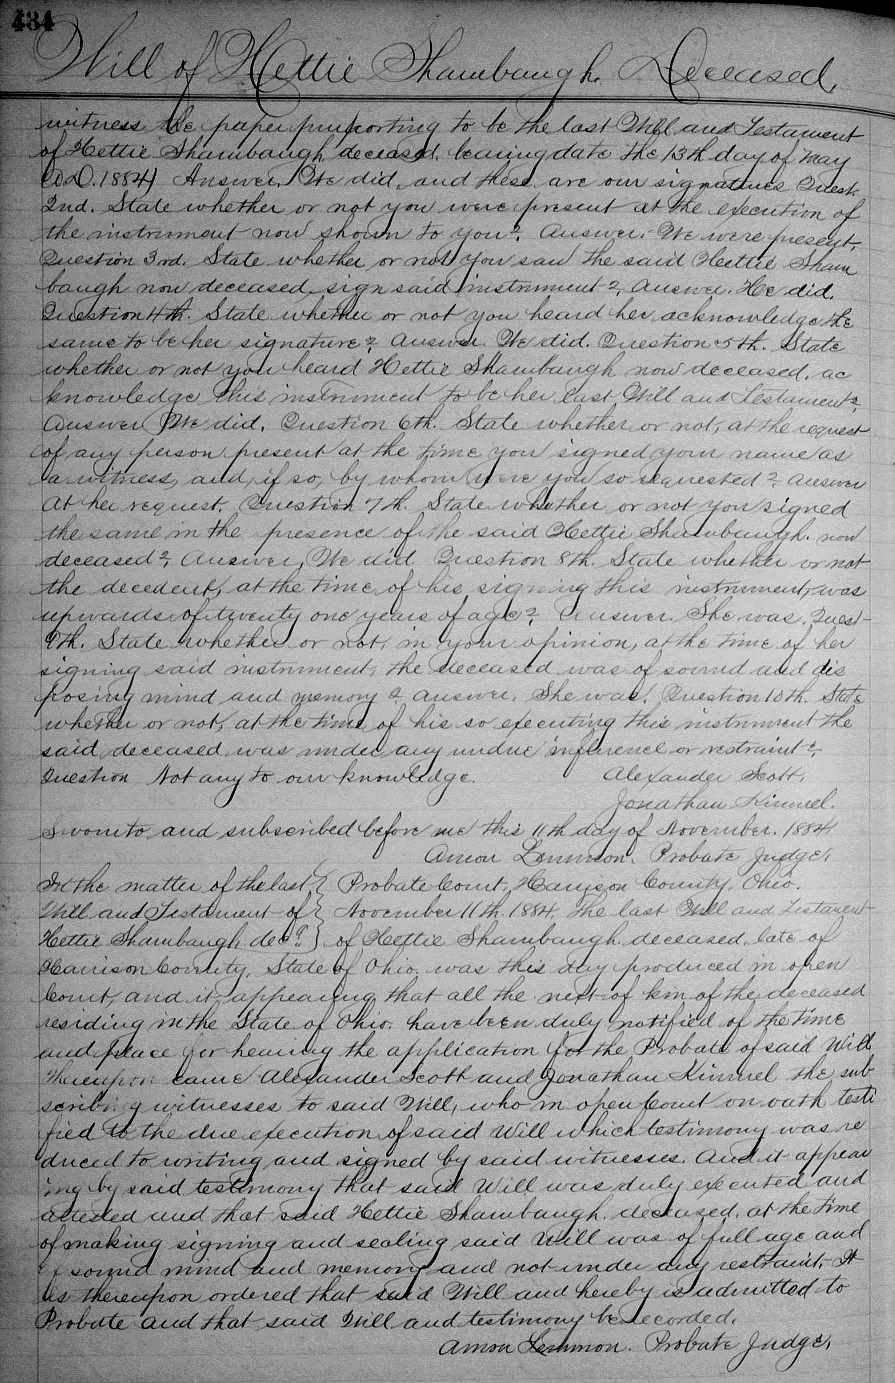 434
Will of Hettie Shambaugh. Deceased.
witness the paper purporting to be the last Will and Testament
of Hettie Shambaugh deceased, bearing date the 13th day of May
A.D. 1884) Answer. We did, and these are our signatures Quest.
2nd. State whether or not you were present at the execution of
the instrument now shown to you? Answer. We were present.
Question 3rd. State whether or not you saw the said Hettie Sham
baugh now deceased sign said instrument? Answer. He did.
Question 4th. State whether or not you heard her acknowledge the
same to be her signature? Answer. We did. Question 5th. State
whether or not you heard Hettie Shambaugh now deceased. ac
knowledge this instrument to be her last Will and Testament?
Answer We did. Question 6th. State whether or not, at the request
of any person present at the time you signed your name as
a witness, and, if so, by whom were you so requested? Answer
At her request. Question 7th. State whether or not you signed
the same in the presence of the said Hettie Shambaugh. now
deceased? Answer, We did Question 8th. State whether or not
the decedent, at the time of his signing this instrument, was
upwards of twenty one years of age? Answer. She was. Quest-
9th. State whether or not, in your opinion, at the time of her
signing said instrument, the deceased was of sound and dis
posing mind and memory? Answer. She was. Question 10th. State
whether or not, at the time of his so executing this instrument the
said deceased was under any undue influence or restraint?
Question Not any to our knowledge. Alexander Scott.
Jonathan Kimmel.
Sworn to and subscribed before me this 11th day of November. 1884
Amon Lemmon. Probate Judge.
In the matter of the last } Probate Court, Harrison County, Ohio.
Will and Testament of } November 11th 1884. The last Will and Testament
Hettie Shambaugh decd } of Hettie Shambaugh deceased, late of
Harrison County, State of Ohio, was this day produced in open
Court, and it appearing that all the next of kin of the deceased
residing in the State of Ohio. have been duly notified of the time
and place for hearing the application for the Probate of said Will
Thereupon came Alexander Scott and Jonathan Kimmel the sub
scribing witnesses to said Will, who in open Court on oath testi
fied to the due execution of said Will which testimony was re
duced to writing and signed by said witnesses. And it appear
ing by said testimony that said Will was duly executed and
attested and that said Hettie Shambaugh. deceased, at the time
of making signing and sealing said Will was of full age and
of sound mind and memory and not under any restraint. It
is thereupon ordered that said Will and hereby is admitted to
Probate and that said Will and testimony be recorded.
Amon Lemmon. Probate Judge.